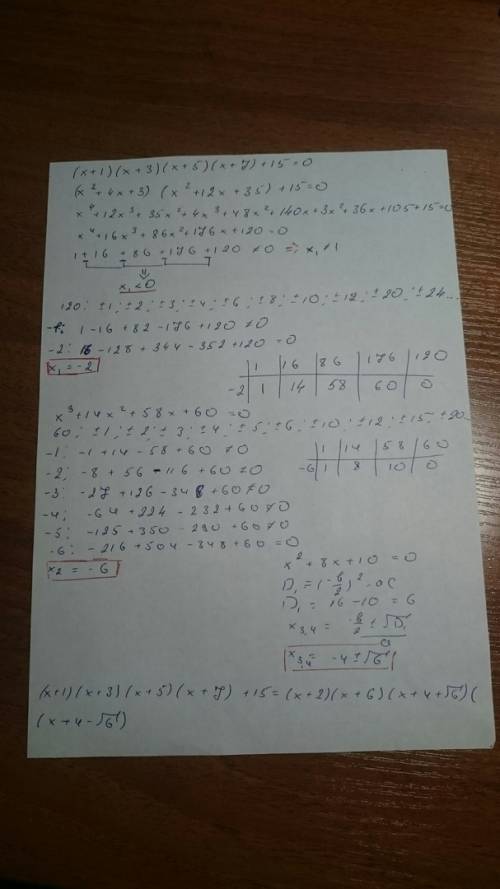 (x+1)(x+3)(x+5)(x+7)+15=0
(x²+4x+3) (x²+12x+35)+15=0
x⁴+12x³+35x²+4x³+48x²+140x+3x²+36x+105+15=0
x⁴+16x³+86x²+176x+120=0
1+16+86+176+120≠0 => x₁≠1
⇓
x₁<0
120: ±1; ±2; ±3; ±4; ±6; ±8; ±10; ±12; ±20; ±24...
-1: 1-16+82-176+120≠0
-2: 16-128+344-352+120=0
x₁=-2
1 16 86 176 120
-2 1 14 58 60 0
x³+14x²+58x+60=0
60: ±1; ±2; ±3; ±4; ±5; ±6; ±10; ±12; ±15; ±20..
-1: -1+14-58+60≠0
-2: -8+56-116+60≠0
-3: -27+126-348+60≠0
-4: -64+224-232+60≠0
-5: -125+350-290+60≠0
-6: -216+504-348+60=0
x₂=-6
1 14 58 60
-6 1 8 10 0
x²+8x+10=0
D₁=(-b/2)²-ac
D₁=16-10=6
x₃,₄=(-b/2±√D₁)/a
x₃,₄=-4±√6
(x+1)(x+3)(x+5)(x+7)+15=(x+2)(x+6)(x+4+√6)(
(x+4-√6)